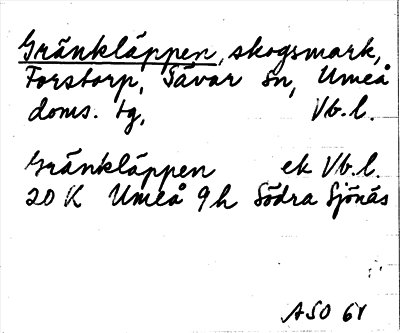 Gränkläppen, skogsmark,
Forstorp, Sävar sn, Umeå
doms. tg, Vb.l.
Gränkläppen ek Vb.l.
20 K Umeå 9h Södra Sjönäs
ASO 67